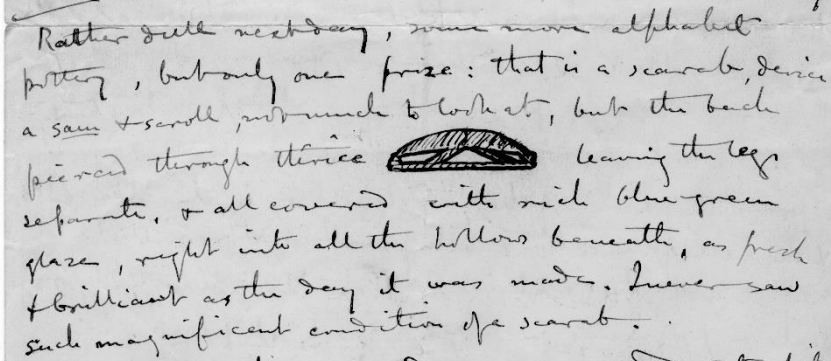 Rather dull next day, some more alphabet
pottery, but only one prize: that is a scarab, device
a sam & scroll, not much to look at, but the back
pierced through thrice leaving the legs
separate, & all covered with rich blue-green
glaze, right into all the hollows beneath, as fresh
& brilliant as the day it was made. I never saw
such magnificent condition of a scarab.